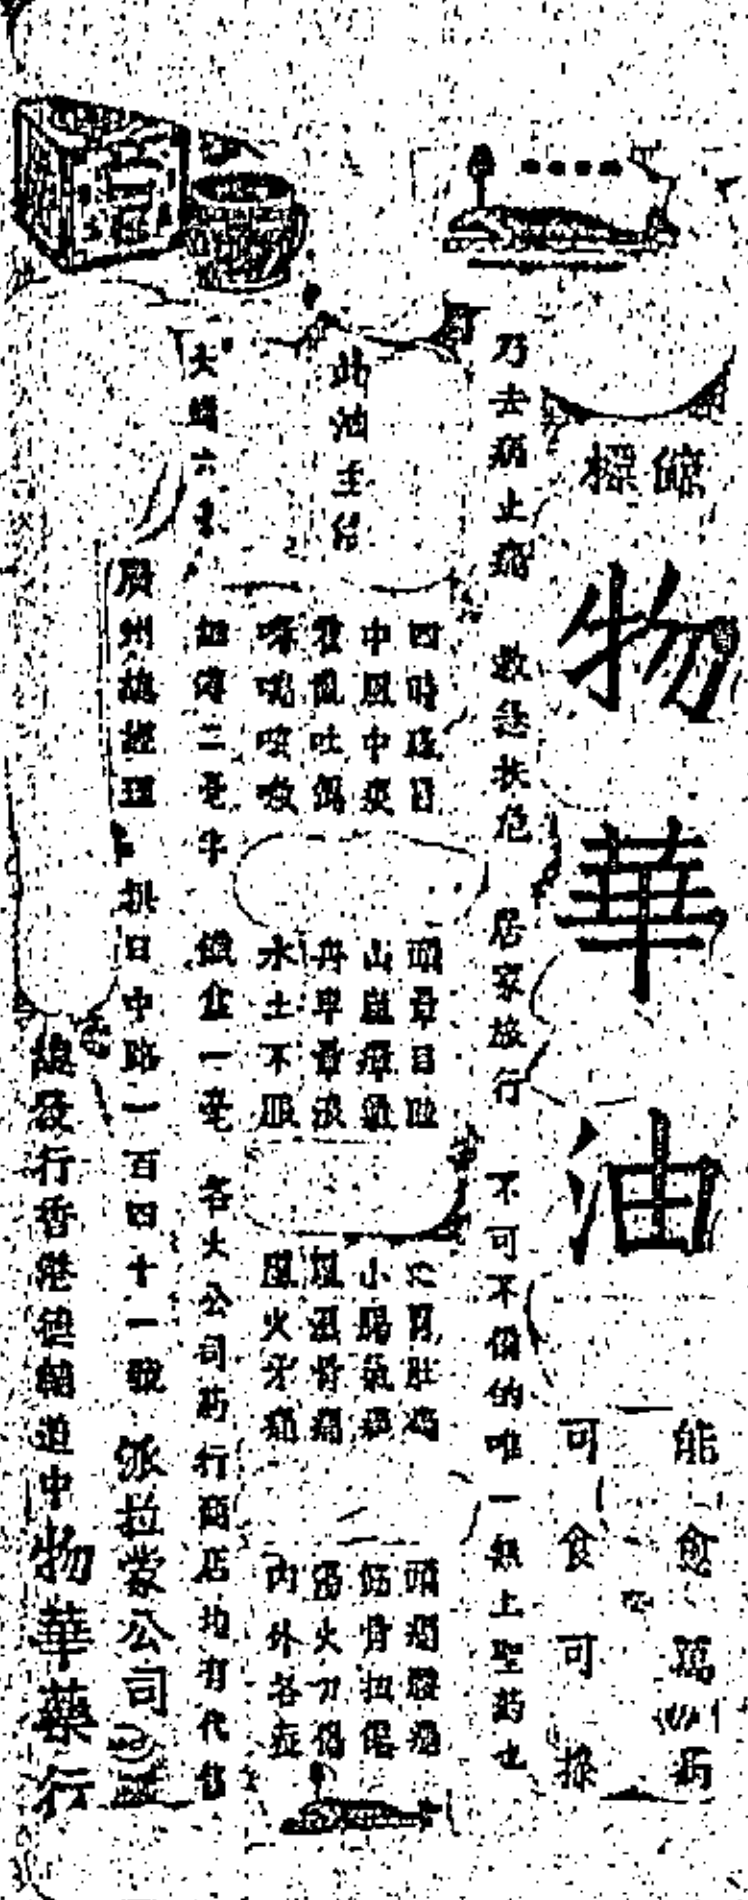 標
物華油
能愈萬病
可食可搽
乃去病止痛 救急扶危 居家旅行 不可不備的唯一無上聖药也
此油主治
四時感冒 頭暈目眩 肚痛 頭痛
中風中寒 山嵐瘴氣 小腸氣痛 筋骨扭傷
霍亂吐瀉 舟車暈浪 風濕骨痛 湯火刀傷
咳嗽 水土不服 風火牙痛 內外各症
大罇六毫 細罇二毫半 鐵盒一毫 各大公司药行商店均有代售
廣州總經理 日中路一百四十一號 派拉蒙公司
總發行香港德輔道中物華藥行